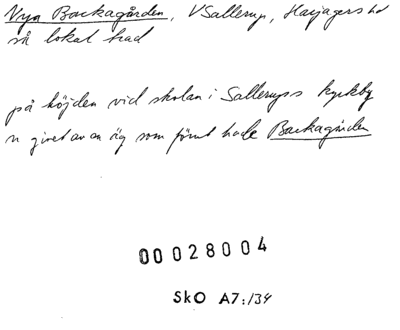 Nya Backagården, VSallerup, Harjagers hd
så lokal trad
på höjden vid skolan i Sallerups kyrkby
n givet av en äg som förut hade Backagården
00028004
SkO A7:134